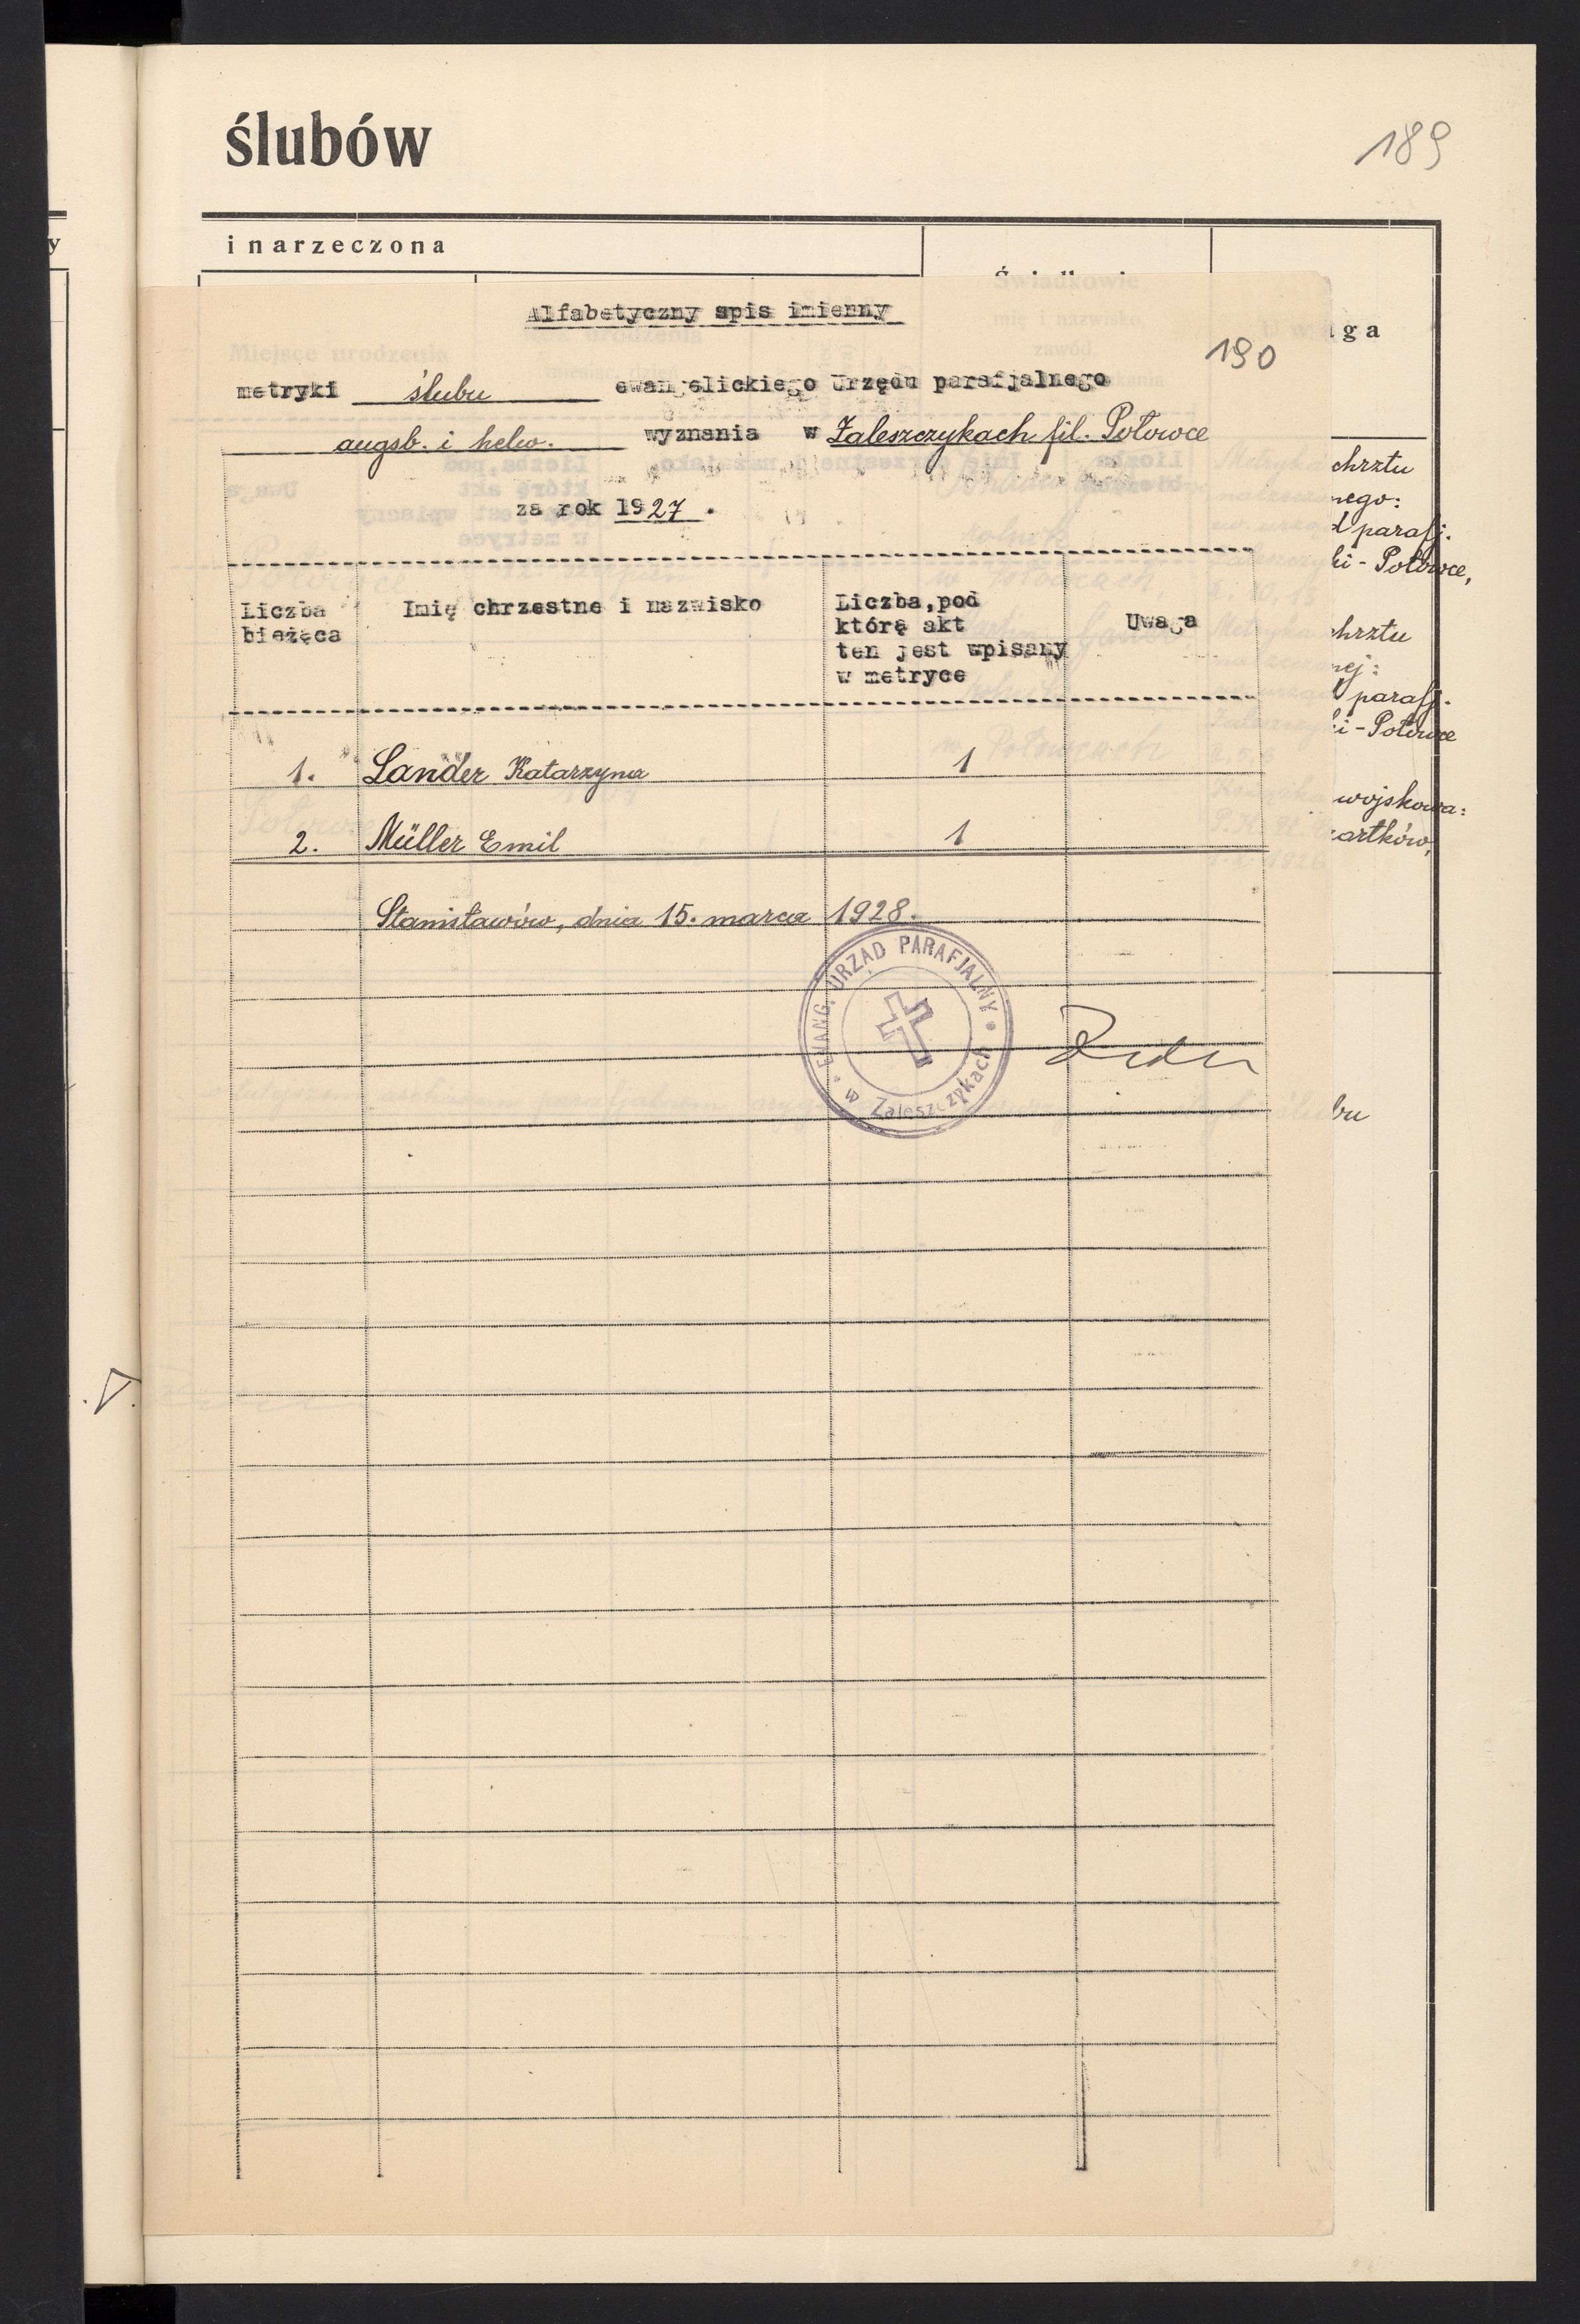 ślubów
189
i narzeczona
Alfabetyczny spis imienny
190
metryki ślubu ewangelickiego Urzędu parafjalnego
augsb. i helw. wyznania w Zaleszczykach fil. Potowce
za rok 1927.
Liczba bieżąca
Imię chrzestne i nazwisko
Liczba, pod którą akt ten jest wpisany w metryce
Uwaga
1. Lander Katarzyna 1
2. Müller Emil 1
Stanisławów, dnia 15. marca 1928.
EWANG. URZĄD PARAFJALNY
w Zaleszczykach
chrztu
parafj.
Potowce,
chrztu
parafj.
Potowce
wojskowa: